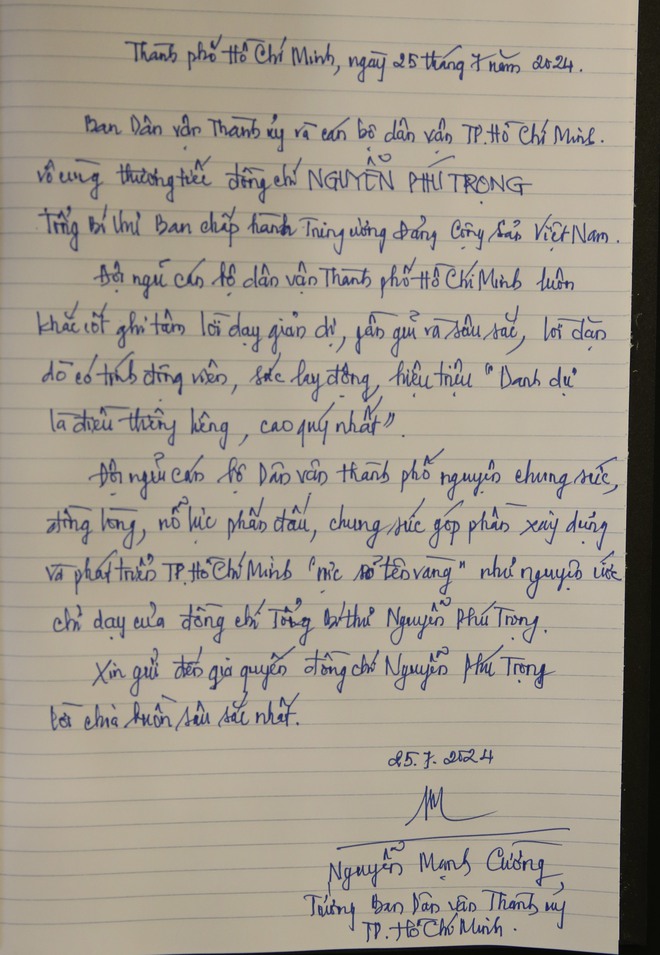 Thành phố Hồ Chí Minh, ngày 25 tháng 7 năm 2024.
Ban Dân vận Thành ủy và cán bộ dân vận TP. Hồ Chí Minh.
vô cùng thương tiếc đồng chí NGUYỄN PHÚ TRỌNG
Tổng Bí thư Ban chấp hành Trung ương Đảng Cộng Sản Việt Nam.
Đội ngũ cán bộ dân vận Thành phố Hồ Chí Minh luôn
khắc cốt ghi tâm lời dạy giản dị, gần gũi và sâu sắc, lời dặn
dò có tính động viên, sức lay động, hiệu triệu "Danh dự
là điều thiêng liêng, cao quý nhất".
Đội ngũ cán bộ Dân vận thành phố nguyện chung sức,
đồng lòng, nổ lực phấn đấu, chung sức góp phần xây dựng
và phát triển TP. Hồ Chí Minh "rực rỡ tên vàng" như nguyện ước
chỉ dạy của đồng chí Tổng Bí thư Nguyễn Phú Trọng.
Xin gửi đến gia quyến đồng chí Nguyễn Phú Trọng
lời chia buồn sâu sắc nhất.
25.7.2024
Nguyễn Mạnh Cường,
Trưởng Ban Dân vận Thành ủy
TP. Hồ Chí Minh.